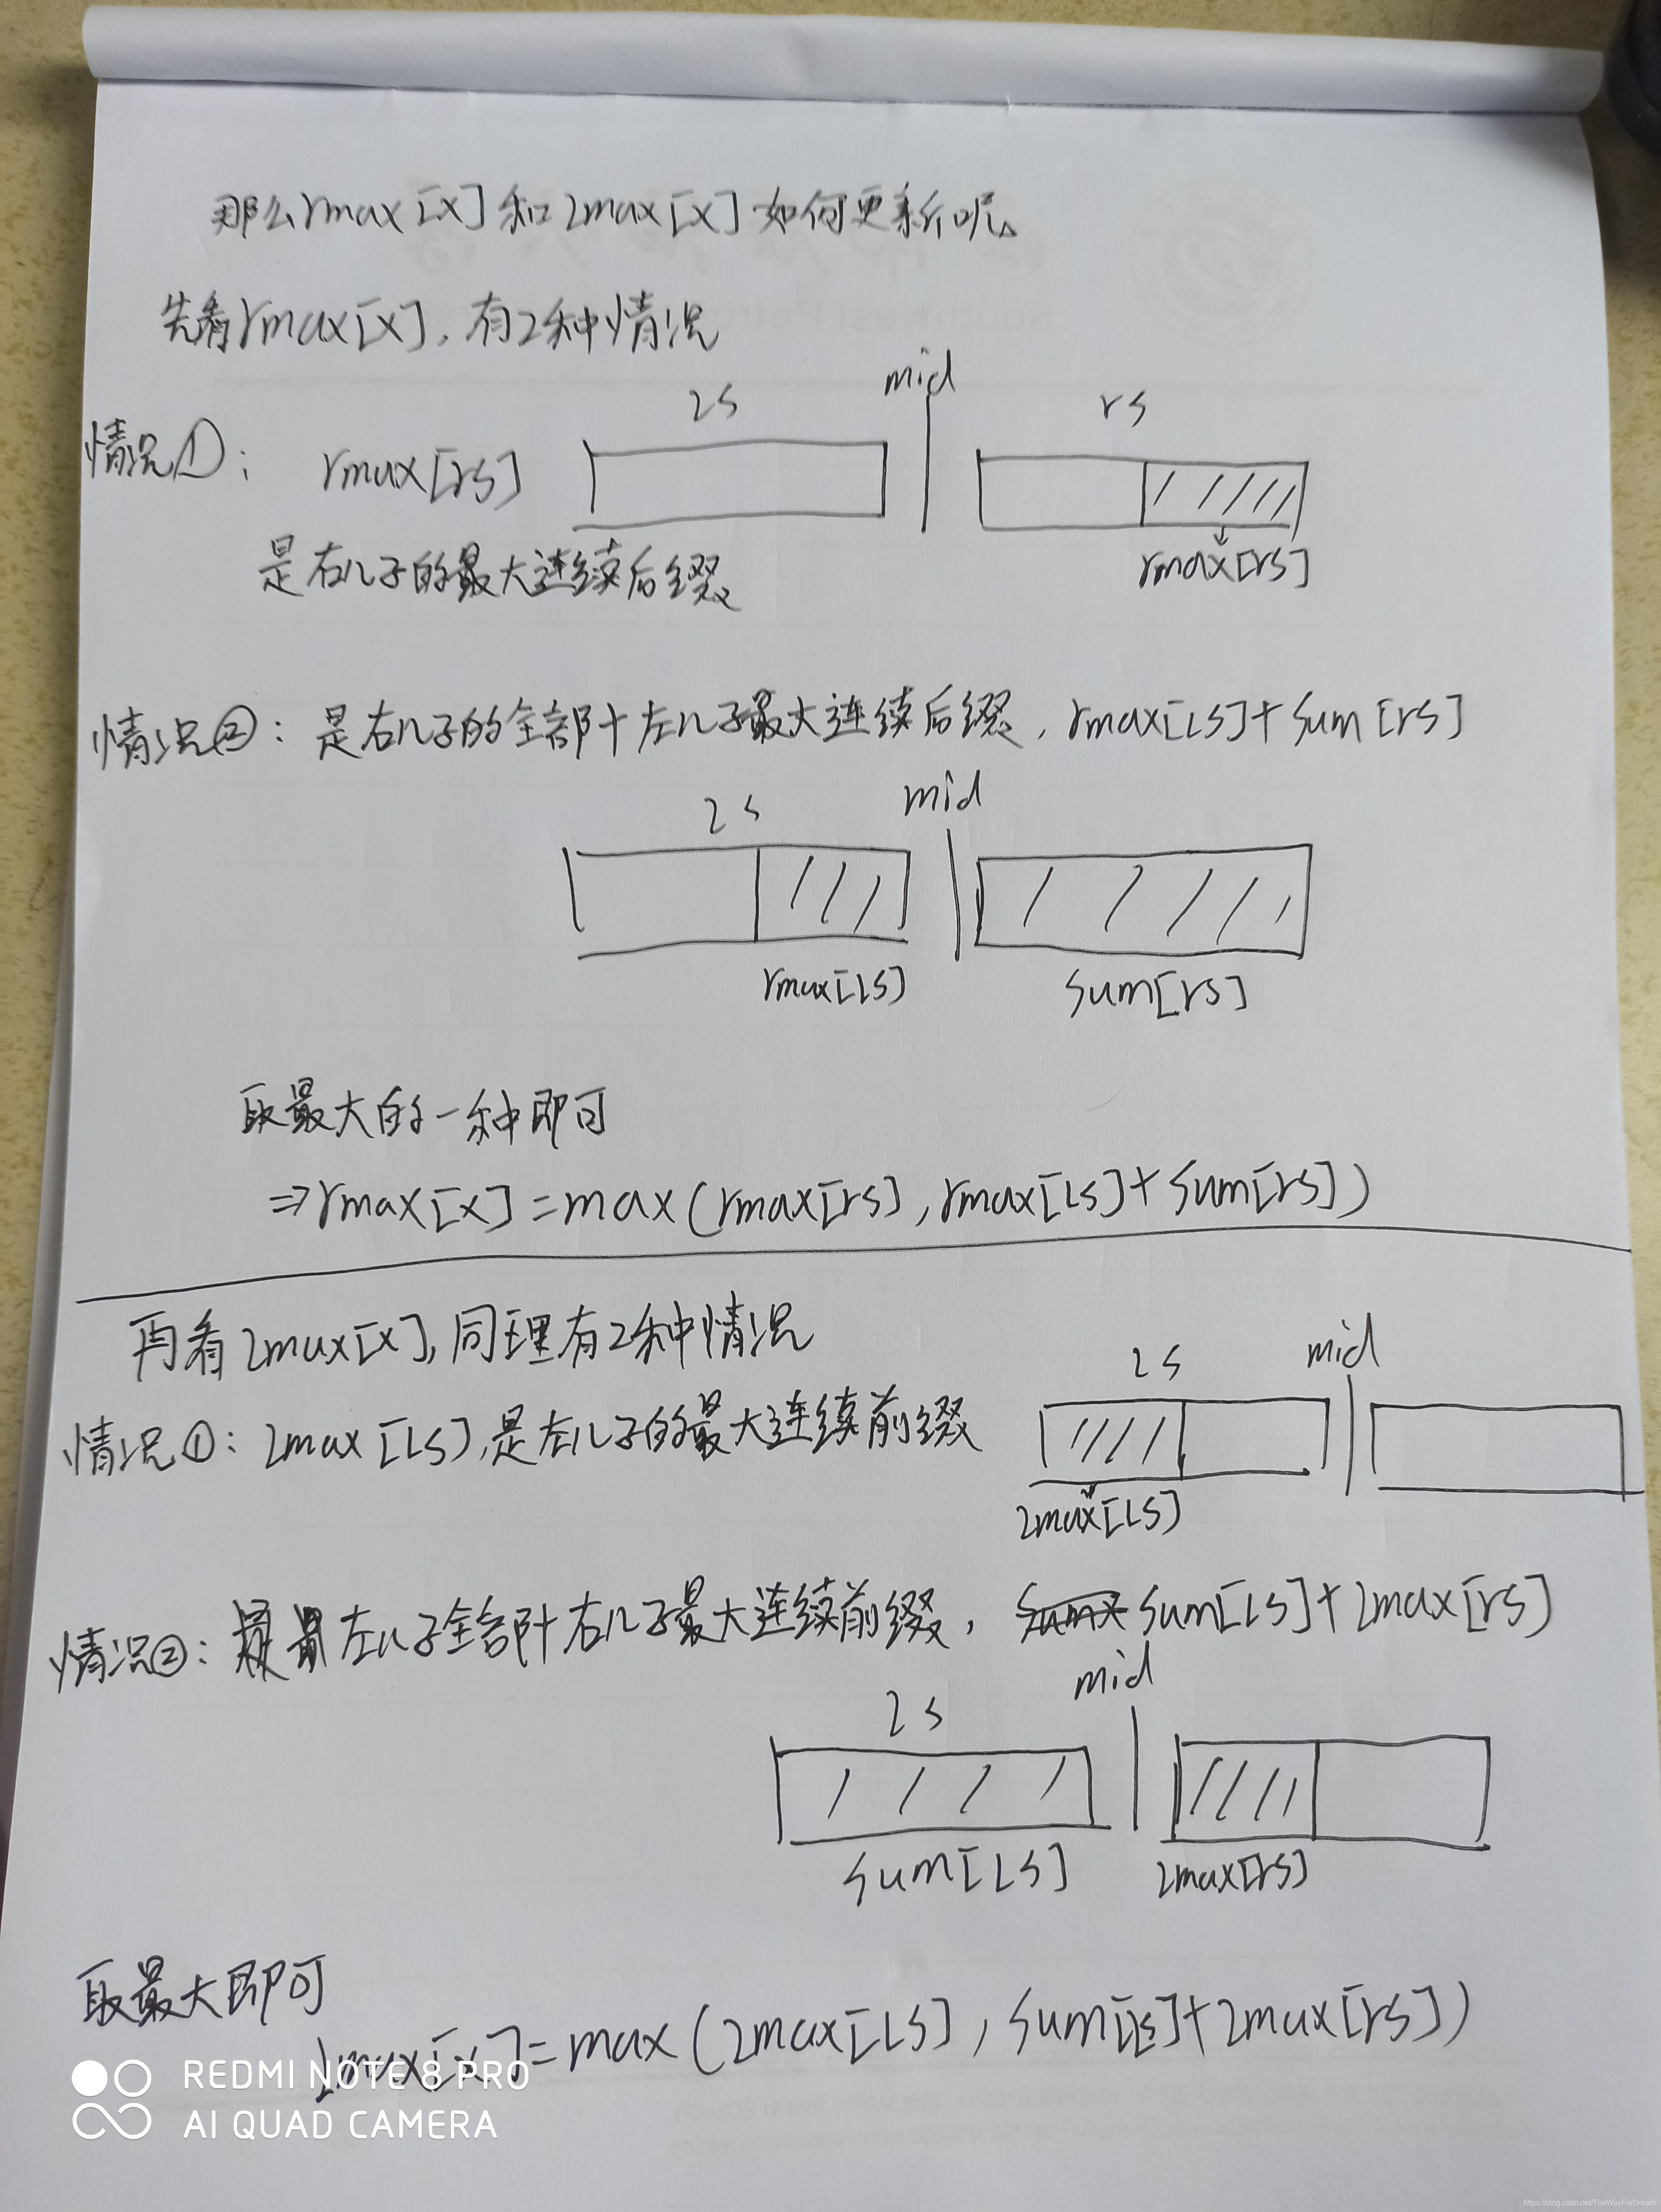 那么rmax[x]和lmax[x]如何更新呢。
先看rmax[x],有2种情况
ls mid rs
情况①: rmax[rs]
rmax[rs]
是右儿子的最大连续后缀
情况②: 是右儿子的全部+左儿子最大连续后缀, rmax[ls]+sum[rs]
ls mid
rmax[ls] sum[rs]
取最大的一种即可
⇒rmax[x]=max(rmax[rs],rmax[ls]+sum[rs])
再看lmax[x],同理有2种情况
ls mid
情况①: lmax[ls],是左儿子的最大连续前缀
lmax[ls]
情况②: 左儿子全部+右儿子最大连续前缀, sum[ls]+lmax[rs]
ls mid
sum[ls] lmax[rs]
取最大即可
lmax[x]=max(lmax[ls],sum[ls]+lmax[rs])
REDMI NOTE 8 PRO
AI QUAD CAMERA
https://blog.csdn.net/TheWayForDream